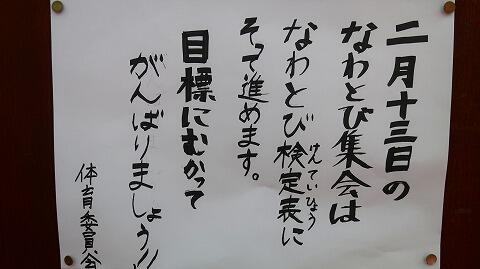 二月十三日の
なわとび集会は
なわとび検定表に
けんていひょう
そって進めます。
目標にむかって
がんばりましょう!!
体育委員会